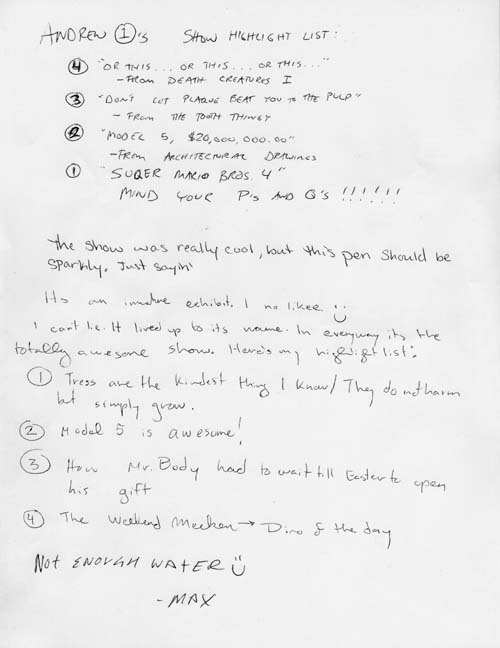 ANDREW ①'s SHOW HIGHLIGHT LIST:
④ "OR THIS... OR THIS... OR THIS..."
- FROM DEATH CREATURES I
③ "DON'T LET PLAQUE BEAT YOU TO THE PULP"
- FROM THE TOOTH THINGY
② "MODEL 5, $20,000,000.00"
- FROM ARCHITECTURAL DRAWINGS
① "SUQER MARIO BROS. 4"
MIND YOUR P's AND Q's !!!!!!
The show was really cool, but this pen should be
sparkly. Just sayin'
Its an immature exhibit. I no likee
I can't lie. It lived up to its name. In everyway its the
totally awesome show. Here's my highlight list:
① Tress are the kindest thing I know/ They do not harm
but simply grow.
② Model 5 is awesome!
③ How Mr. Body had to wait till Easter to open
his gift
④ The Weekend Meeken → Dino of the day
NOT ENOUGH WATER
- MAX